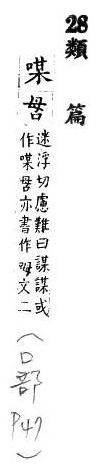 28類 篇
㖼𠰔迷浮切慮難曰謀謀或
作㖼𠰔亦書作𠰔文二
(口部
P47)